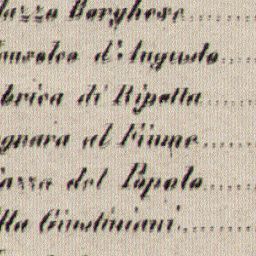 lazzo Borghese
ausoleo d'Augusto
bbrica di Ripetta
gnara al Fiume
iazza del Popolo
lla Giustiniani